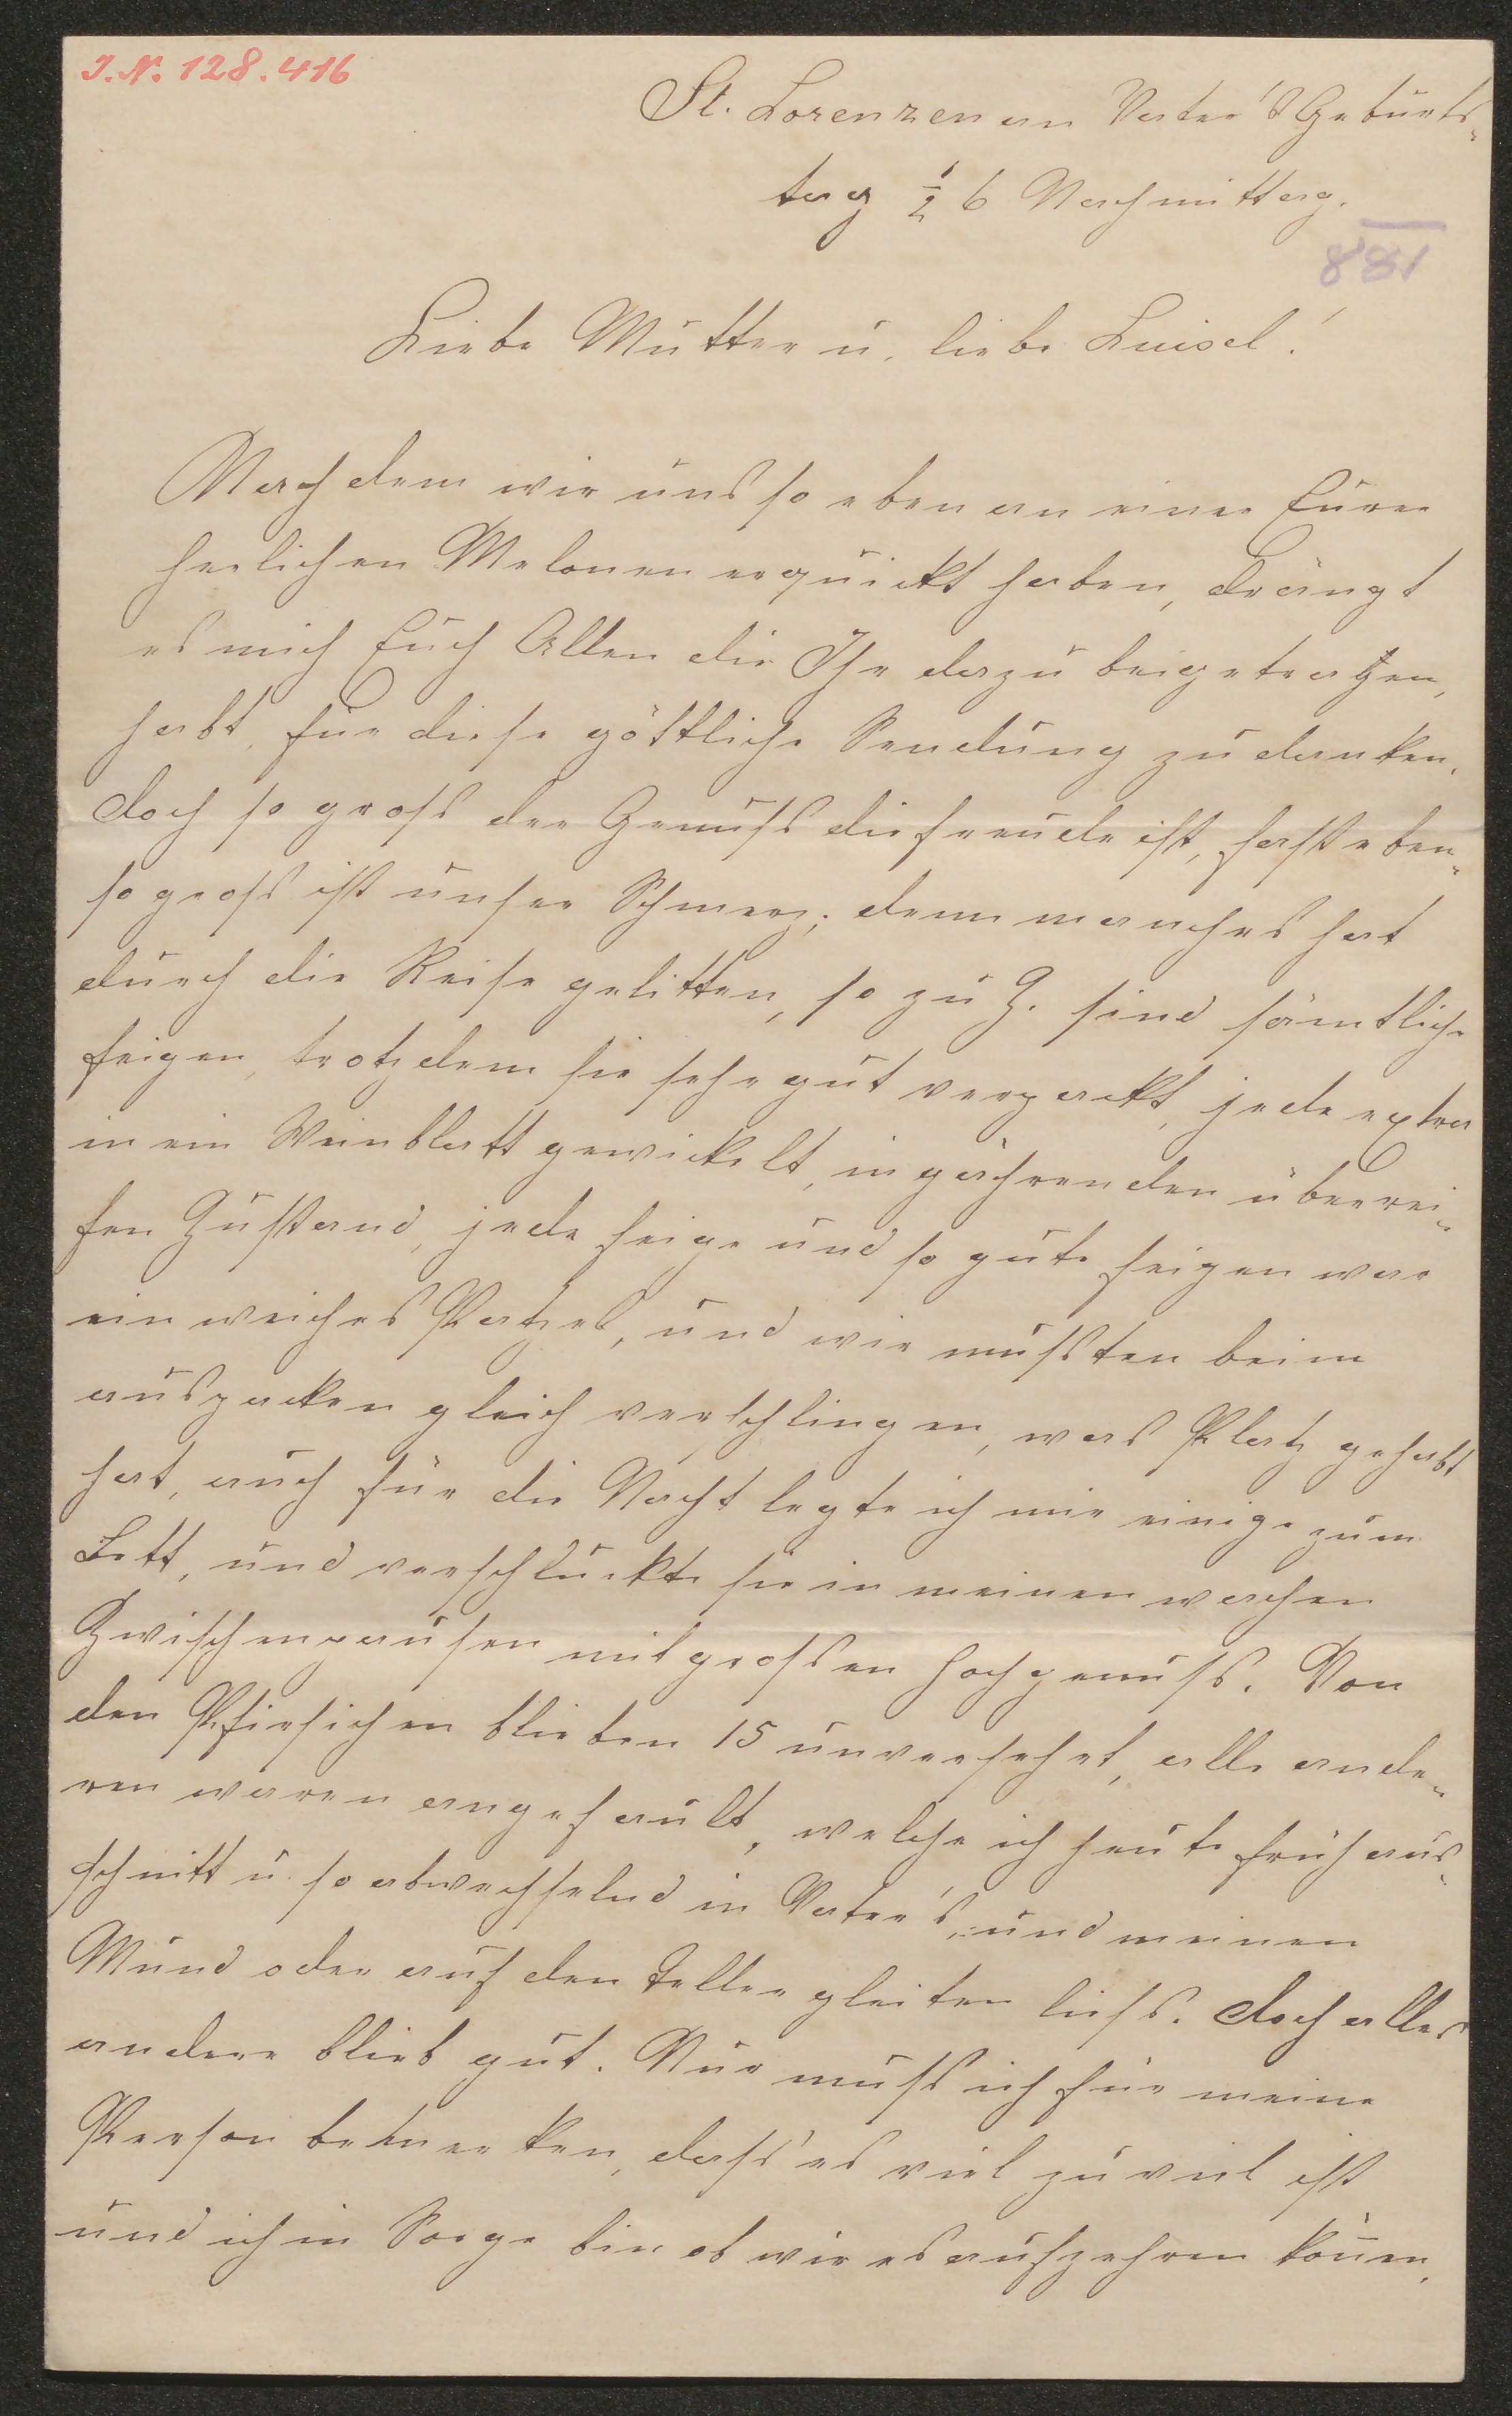 I.N. 128.416
St. Lorenzen am Vater's Geburts-
tag ½ 6 Nachmittag.
188
Liebe Mutter u. liebe Luisel!
Nachdem wir uns so eben an einer Eurer
herlichen Melonen erquickt haben, drängt
es mich Euch Allen die Ihr dazu beigetragen,
habt, für diese göttliche Sendung zu danken.
Doch so gross der Genuss die Freude ist, fast eben-
so gross ist unser Schmerz; denn manches hat
durch die Reise gelitten, so zu Z. sind sämtliche
Feigen, trotzdem sie sehr gut verpackt, jede extra
in ein Weinblatt gewickelt, in gährenden überrei-
fen Zustand, jede Feige und so gute Feigen war
ein weiches Patzel, und wir mussten beim
auspacken gleich verschlingen, was Platz gehabt
hat, auch für die Nacht legte ich mir einige zum
Bett, und verschluckte sie in meinen wachen
Zwischenpausen mit grossen Hochgenuss. Von
den Pfirsichen blieben 15 unversehrt, alle ande-
ren waren angefault, welche ich heute früh aus-
schnitt u. so abwechselnd in Vater's, und meinen
Mund oder auf den Teller gleiten liess. Doch alles
andere blieb gut. Nur muss ich für meine
Person bemerken, dass es viel zu viel ist
und ich in Sorge bin ob wir es aufzehren könen.